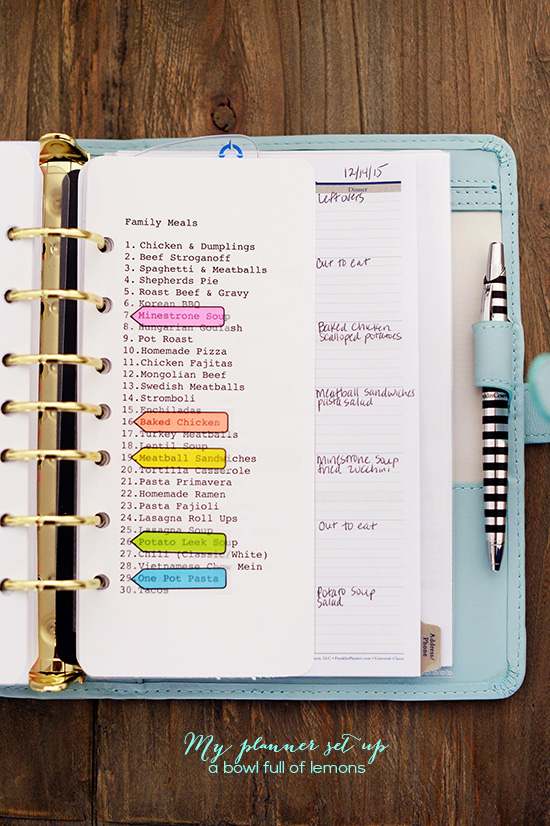 Family Meals
1. Chicken & Dumplings
2. Beef Stroganoff
3. Spaghetti & Meatballs
4. Shepherds Pie
5. Roast Beef & Gravy
6. Korean BBQ
7. Minestrone Soup
8. Hungarian Goulash
9. Pot Roast
10. Homemade Pizza
11. Chicken Fajitas
12. Mongolian Beef
13. Swedish Meatballs
14. Stromboli
15. Enchiladas
16. Baked Chicken
17. Turkey Meatballs
18. Lentil Soup
19. Meatball Sandwiches
20. Tortilla Casserole
21. Pasta Primavera
22. Homemade Ramen
23. Pasta Fajioli
24. Lasagna Roll Ups
25. Lasagna Soup
26. Potato Leek Soup
27. Chili (Classic/White)
28. Vietnamese Chow Mein
29. One Pot Pasta
30. Tacos
12/14/15
Dinner
Leftovers
Out to eat
Baked Chicken
scalloped potatoes
Meatball sandwiches
pasta salad
Minestrone soup
fried zucchini
Out to eat
Potato soup
salad
Address/
Phone
My planner set up
a bowl full of lemons